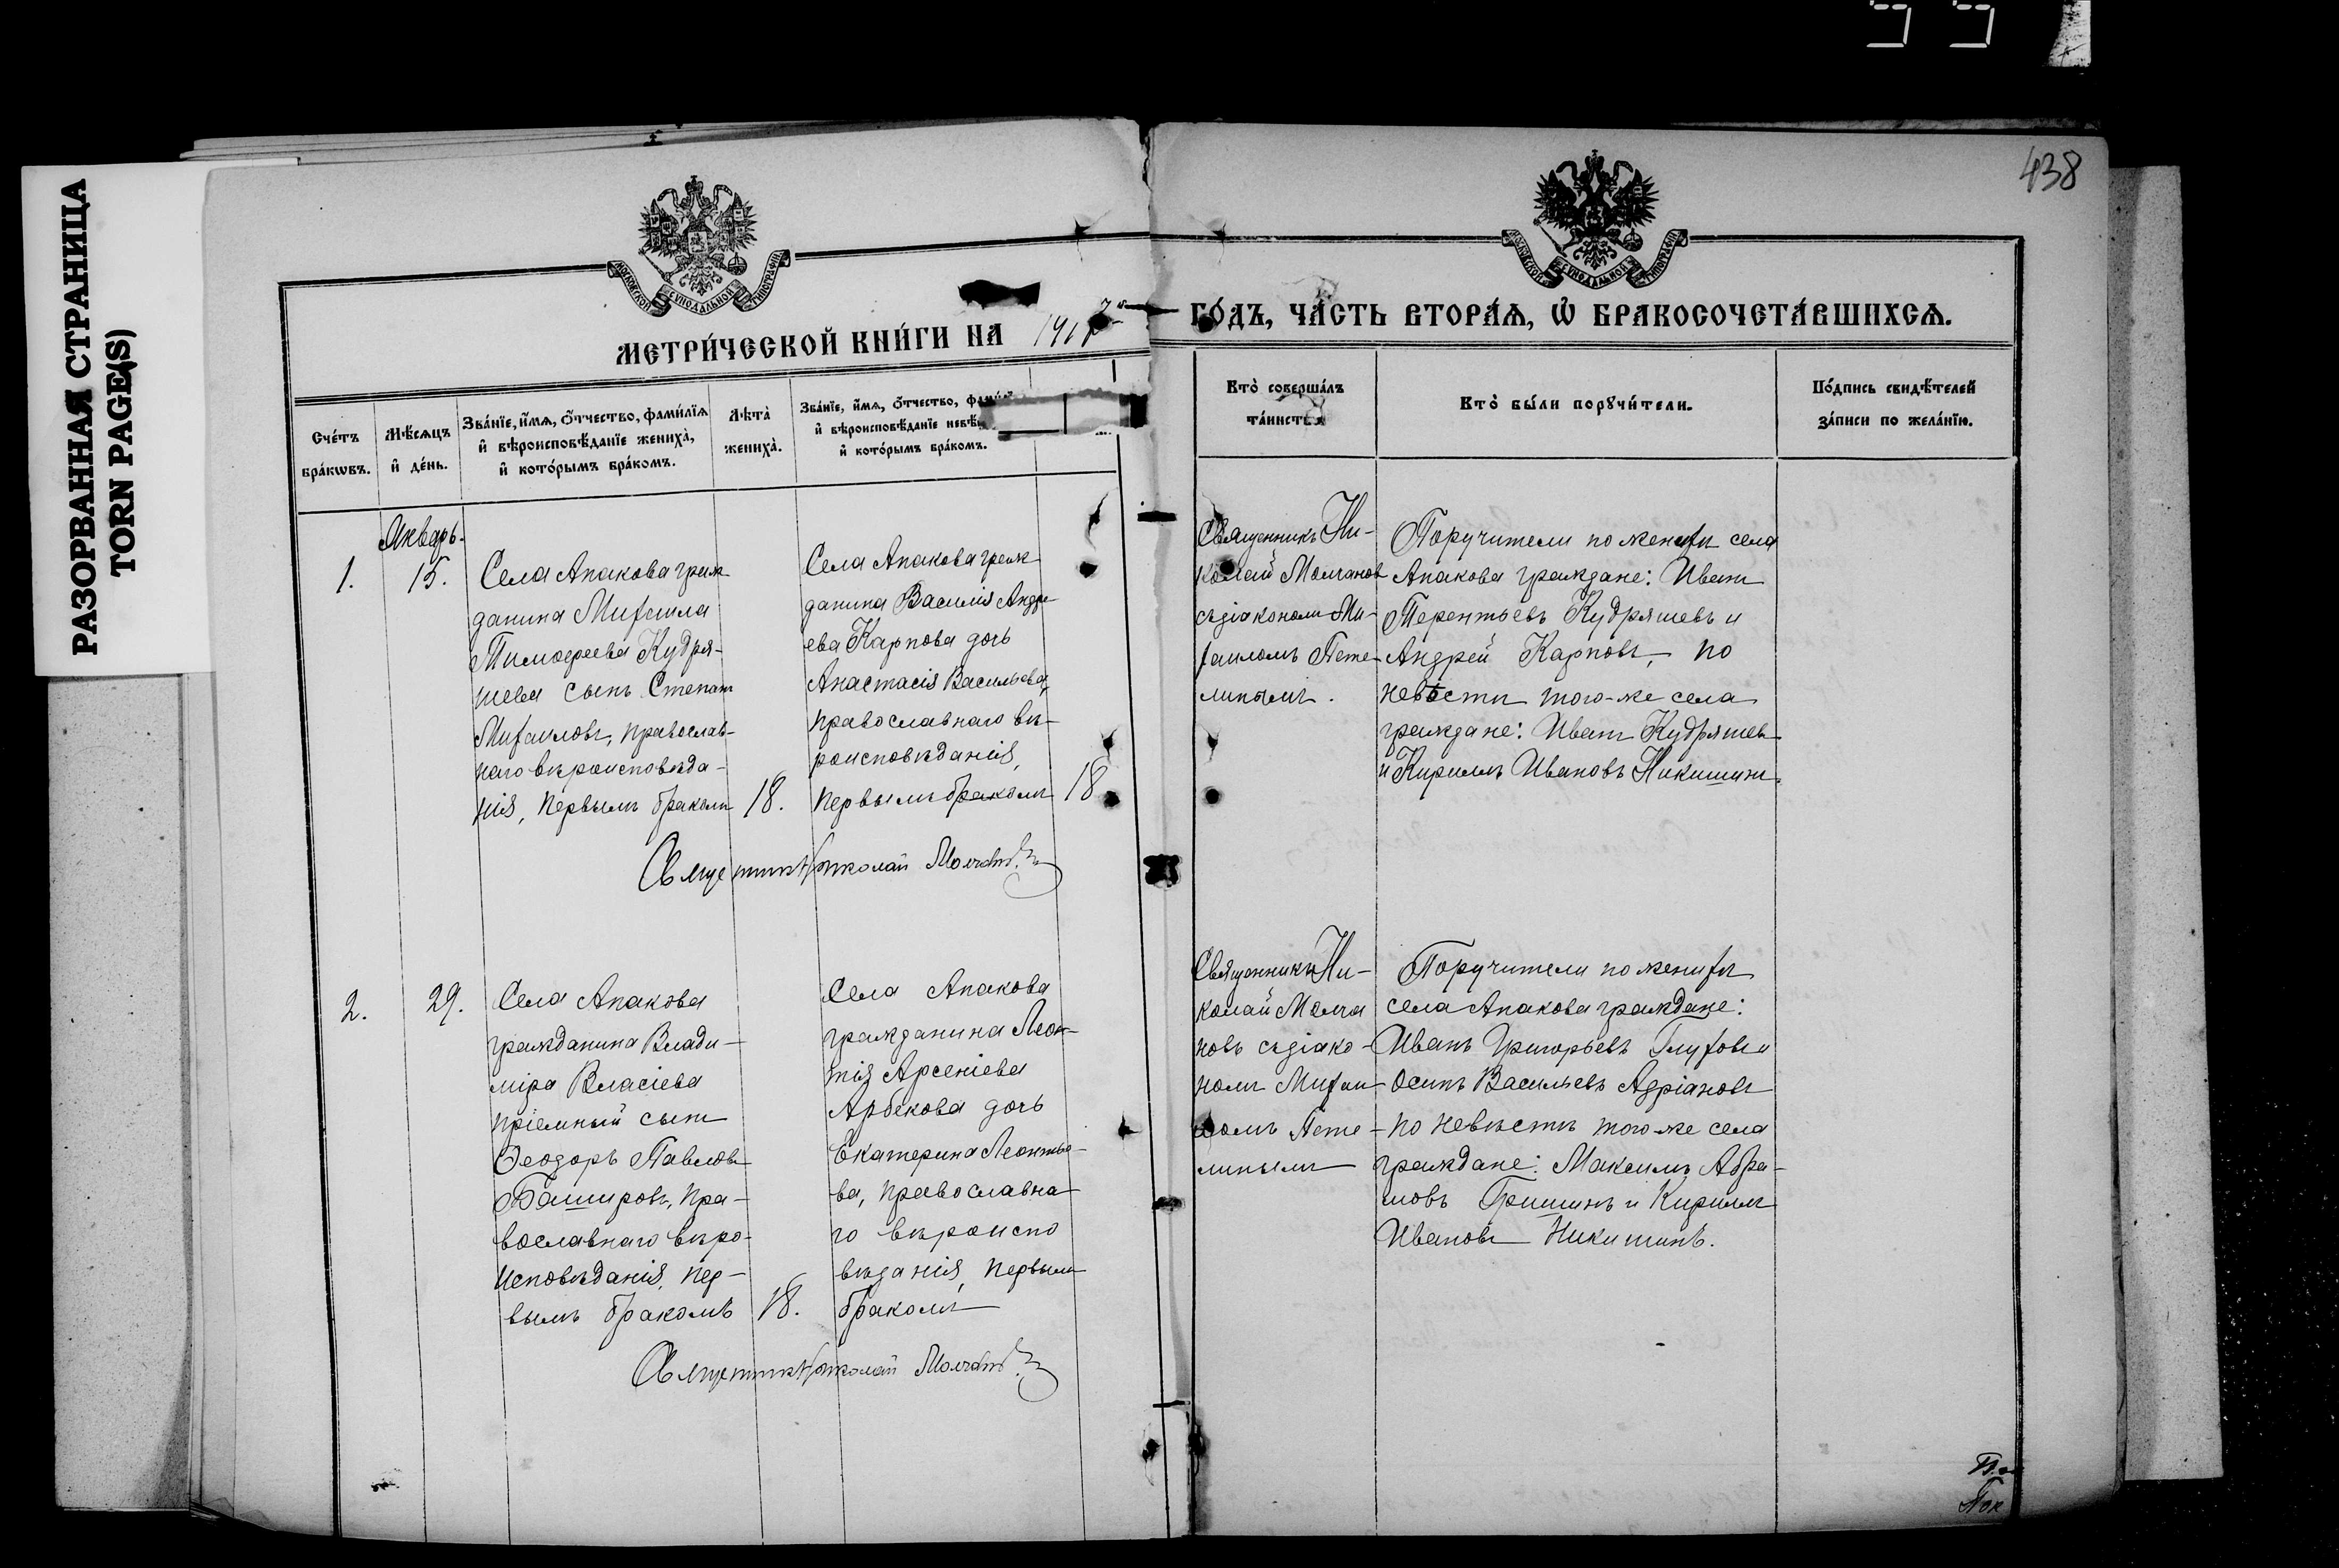 438
РАЗОРВАННАЯ СТРАНИЦА
TORN PAGE(S)
МОСКОВСКОЙ СѴНОДАЛЬНОЙ ТИПОГРАФІИ
МОСКОВСКОЙ СѴНОДАЛЬНОЙ ТИПОГРАФІИ
МЕТРИ́ЧЕСКОЙ КНИ́ГИ НА
ГО́ДЪ, ЧА́СТЬ ВТОРА́Я, Ѡ҆ БРАКОСОЧЕТА́ВШИХСЯ.
Сче́тъ
бра́кѡвъ.
Мѣ́сяцъ
и҆ де́нь.
Зва́нїе, и҆́мя, ѻ҆́тчество, фами́лїя
и҆ вѣроисповѣ́данїе жениха̀,
и҆ кото́рымъ бра́комъ.
Лѣта̀
жениха̀.
Зва́нїе, и҆́мя, ѻ҆́тчество,
и҆ вѣроисповѣ́данїе
и҆ кото́рымъ бра́комъ.
Кто̀ соверша́лъ
та́инство
Кто̀ бы́ли порꙋчи́тели.
По́дпись свидѣ́телей
за́писи по жела́нїю.
Январь.
1.
15.
Села Апакова граж
данина Михаила
Тимофеева Кудря-
шева сынъ Степанъ
Михаиловъ, православ-
наго вѣроисповѣда-
нія, первымъ бракомъ
18.
Села Апакова граж
данина Василія Андре
ева Карпова дочь
Анастасія Васильева,
православнаго вѣ-
роисповѣданія,
первымъ бракомъ
18
Священникъ Ни-
колай Молчановъ
съ діакономъ Ми-
хаиломъ Пете-
линымъ.
Поручители по женихѣ села
Апакова граждане: Иванъ
Терентьевъ Кудряшевъ и
Андрей Карповъ, по
невѣстѣ того-же села
граждане: Иванъ Кудряшевъ
и Кириллъ Ивановъ Никишинъ
Священникъ Николай Молчановъ
2.
29.
Села Апакова
гражданина Влади-
міра Власіева
пріемный сынъ
Ѳеодоръ Павловъ
Башировъ, пра-
вославнаго вѣро-
исповѣданія, пер-
вымъ бракомъ
18.
Села Апакова
гражданина Леон-
тія Арсеніева
Арбекова дочь
Екатерина Леонтье-
ва, православна-
го вѣроиспо
вѣданія, первымъ
бракомъ
Священникъ Ни-
колай Молча
новъ съ діако-
номъ Михаи
ломъ Пете-
линымъ
Поручители по женихѣ
села Апакова граждане:
Иванъ Григорьевъ Глуховъ и
Осипъ Васильевъ Адріановъ
по невѣстѣ того-же села
граждане: Максимъ Абра-
мовъ Гришинъ и Кириллъ
Ивановъ Никишинъ.
Священникъ Николай Молчановъ